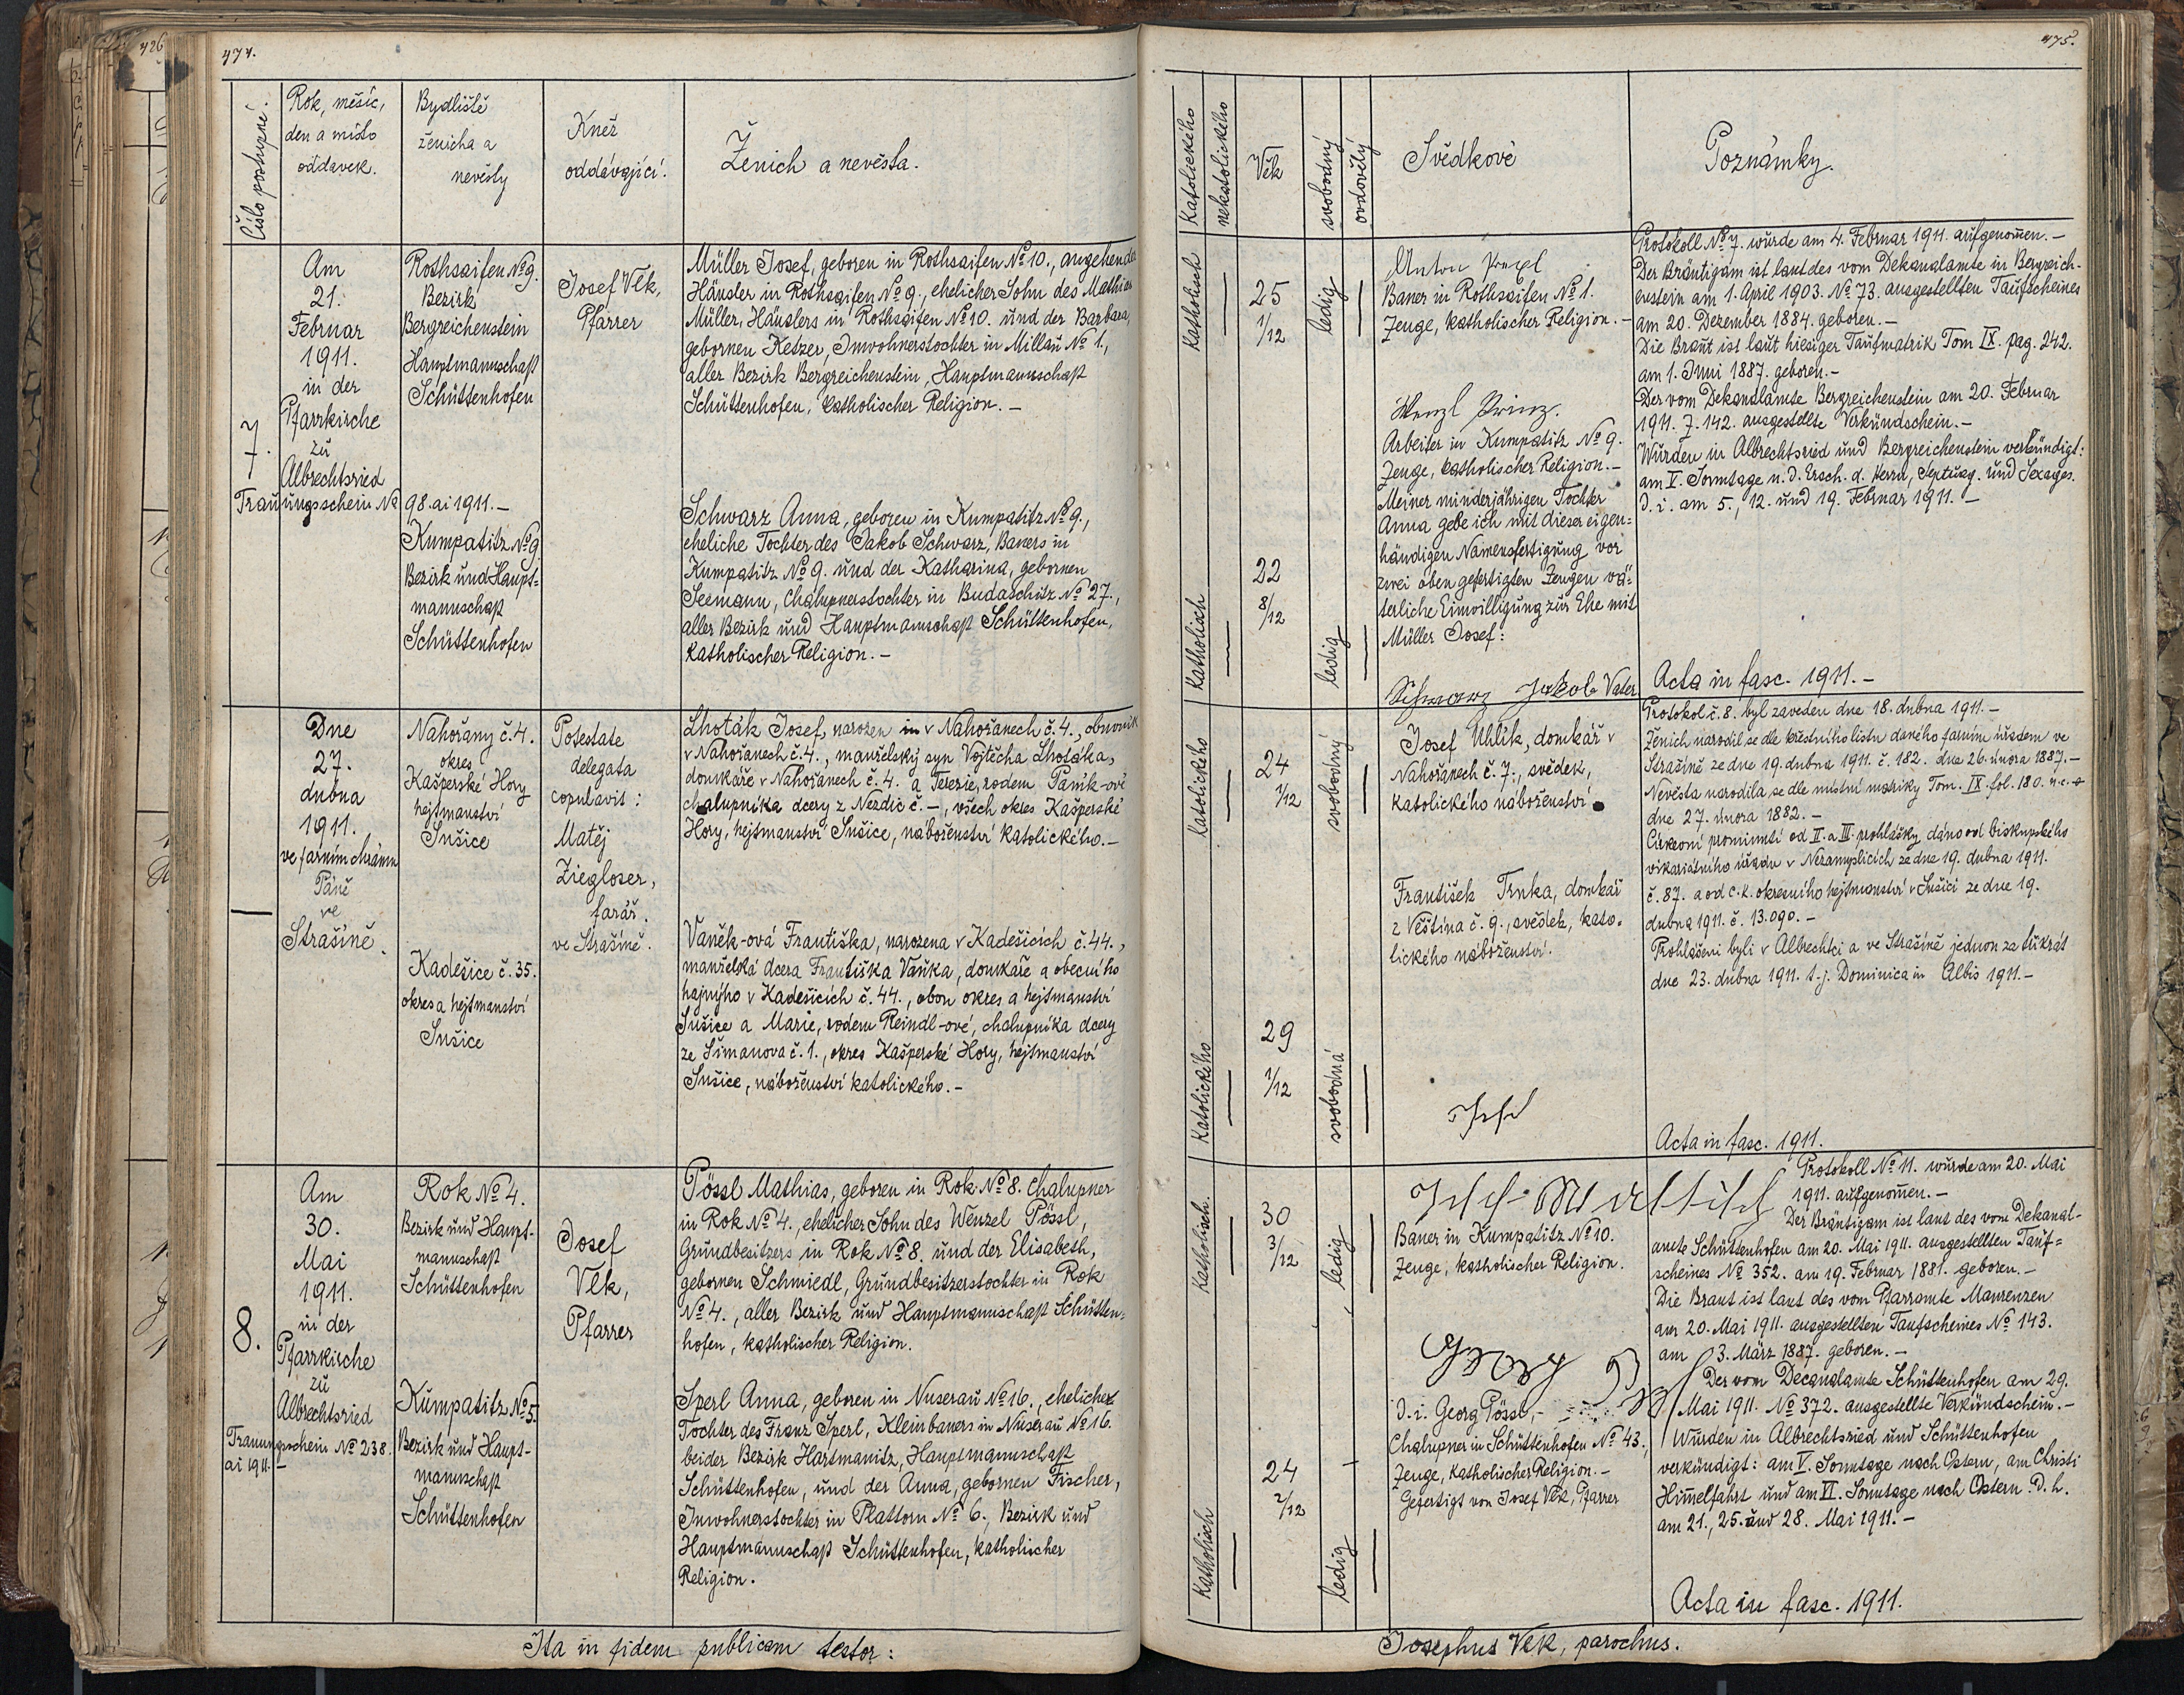 474.
Číslo postupné.
Rok, měsíc,
den a místo
oddavek.
Bydliště
ženicha a
nevěsty
Kněz
oddávající.
Ženich a nevěsta.
7.
Am
21.
Februar
1911.
in der
Pfarrkirche
zu
Albrechtsried
Trauungsschein No 98. ai 1911.-
Rothsaifen No 9.
Bezirk
Bergreichenstein
Hauptmannschaft
Schüttenhofen
Kumpatitz No 9
Bezirk und Haupt=
mannschaft
Schüttenhofen
Josef Vlk,
Pfarrer
Müller Josef, geboren in Rothsaifen No 10., angehender
Häusler in Rothsaifen No 9., ehelicher Sohn des Mathias
Müller, Häuslers in Rothsaifen No 10. und der Barbara,
gebornen Ketzer, Inwohnerstochter in Millau No 1.,
aller Bezirk Bergreichenstein, Hauptmannschaft
Schüttenhofen, katholischer Religion.-
Schwarz Anna, geboren in Kumpatitz No 9.,
eheliche Tochter des Jakob Schwarz, Bauers in
Kumpatitz No 9. und der Katharina, gebornen
Seemann, Chalupnerstochter in Budaschitz No 27.,
aller Bezirk und Hauptmannschaft Schüttenhofen,
katholischer Religion.-
Dne
27.
dubna
1911.
ve farním chrámu
Páně
ve
Strašíně.
Nahořany č. 4.
okres
Kašperské Hory
hejtmanství
Sušice
Kadešice č. 35.
okres a hejtmanství
Sušice
Potestate
delegata
copulavit:
Matěj
Ziegloser,
farář.
ve Strašíně.
Lhoták Josef, narozen in v Nahořanech č. 4., obuvník
v Nahořanech č. 4., manželský syn Vojtěcha Lhotáka,
domkáře v Nahořanech č. 4. a Terezie, rodem Paník-ové
chalupníka dcery z Nezdic č. -, všech okres Kašperské
Hory, hejtmanství Sušice, náboženství katolického.-
Vaněk-ová Františka, narozena v Kadešicích č. 44.,
manželská dcera Františka Vaňka, domkáře a obecního
hajného v Kadešicích č. 44., obou okres a hejtmanství
Sušice a Marie, rodem Reindl-ové, chalupníka dcery
ze Šimanova č. 1., okres Kašperské Hory, hejtmanství
Sušice, náboženství katolického.-
8.
Am
30.
Mai
1911.
in der
Pfarrkirche
zu
Albrechtsried
Trauungsschein No 238.
ai 1911.-
Rok No 4.
Bezirk und Haupt-
mannschaft
Schüttenhofen
Kumpatitz No 5.
Bezirk und Haupt-
mannschaft
Schüttenhofen
Josef
Vlk,
Pfarrer
Pössl Mathias, geboren in Rok No 8. Chalupner
in Rok No 4., ehelicher Sohn des Wenzel Pössl,
Grundbesitzers in Rok No 8. und der Elisabeth,
gebornen Schmiedl, Grundbesitzerstochter in Rok
No 4., aller Bezirk und Hauptmannschaft Schütten=
hofen, katholischer Religion.
Sperl Anna, geboren in Nuserau No 16., eheliche
Tochter des Franz Sperl, Kleinbauers in Nuserau No 16.
beider Bezirk Hartmanitz, Hauptmannschaft
Schüttenhofen, und der Anna, gebornen Fischer,
Inwohnerstochter in Plattorn No 6., Bezirk und
Hauptmannschaft Schüttenhofen, katholischer
Religion.
Ita in fidem publicam testor:
475.
Katolického
nekatolického
Věk
svobodný
ovdovělý
Svědkové
Poznámky.
Katholisch
25
1/12
ledig
Katholisch
22
8/12
ledig
Anton
Bauer in Rothsaifen No 1.
Zeuge, katholischer Religion.-
Wenzl Prinz.
Arbeiter in Kumpatitz No 9.
Zeuge, katholischer Religion.-
Meiner minderjährigen Tochter
Anna gebe ich mit dieser eigen=
händigen Namensfertigung vor
zwei oben gefertigten Zeugen vä=
terliche Einwilligung zur Ehe mit
Müller Josef:
Schwarz Jakob Vater
Protokoll No 7. wurde am 4. Februar 1911. aufgenomen.-
Der Bräutigam ist laut des vom Dekanalamte in Bergreich-
enstein am 1. April 1903. No 73. ausgestellten Taufscheines
am 20. Dezember 1884. geboren.-
Die Braut ist laut hiesiger Taufmatrik Tom IX. pag. 242.
am 1. Juni 1887. geboren.-
Der vom Dekanalamte Bergreichenstein am 20. Februar
1911. Z. 142. ausgestellte Verkündschein.-
Wurden in Albrechtsried und Bergreichenstein verkündigt:
am V. Sonntage n. d. Ersch. d. Herrn, Septuag. und Sexages.
d. i. am 5., 12. und 19. Februar 1911.-
Acta in fasc. 1911.-
Katolického
24
1/12
svobodný
Katolického
29
1/12
svobodná
Josef Uhlík, domkář v
Nahořanech č. 7., svědek,
katolického náboženství.
František Trnka, domkář
z Věštína č. 9., svědek, kato-
lického náboženství.
Protokol č. 8. byl zaveden dne 18. dubna 1911.-
Ženich narodil se dle křestního listu daného farním úřadem ve
Strašíně ze dne 19. dubna 1911. č. 182. dne 26. února 1887.-
Nevěsta narodila se dle místní matriky Tom. IX. fol. 180.
dne 27. února 1882.-
Církevní prominutí od II. a III. prohlášky dáno od biskupského
vikariátního úřadu v Nezamyslicích ze dne 19. dubna 1911.
č. 87. a od c. k. okresního hejtmanství v Sušici ze dne 19.
dubna 1911. č. 13.090.-
Prohlášeni byli v Albrechtci a ve Strašíně jednou za třikrát
dne 23. dubna 1911. t. j. Dominica in Albis 1911.-
Acta in fasc. 1911.
Katholisch.
30
3/12
ledig
Katholisch
24
2/12
ledig
Josef
Bauer in Kumpatitz No 10.
Zeuge, katholischer Religion.
Georg
d. i. Georg Pössl,
Chalupner in Schüttenhofen No 43.,
Zeuge, katholischer Religion.-
Gefertigt von Josef Vlk, Pfarrer
Protokoll No 11. wurde am 20. Mai
1911. aufgenomen.-
Der Bräutigam ist laut des vom Dekanal-
amte Schüttenhofen am 20. Mai 1911. ausgestellten Tauf=
scheines No 352. am 19. Februar 1881. geboren.-
Die Braut ist laut des vom Pfarramte Maurenzen
am 20. Mai 1911. ausgestellten Taufscheines No 143.
am 3. März 1887. geboren.-
Der vom Decanalamte Schüttenhofen am 29.
Mai 1911. No 372. ausgestellte Verkündschein.-
Wurden in Albrechtsried und Schüttenhofen
verkündigt: am V. Sonntage nach Ostern, am Christi
Himelfahrt und am VI. Sonntage nach Ostern. d. h.
am 21., 25. und 28. Mai 1911.-
Acta in fasc. 1911.
Josephus Vlk, parochus.